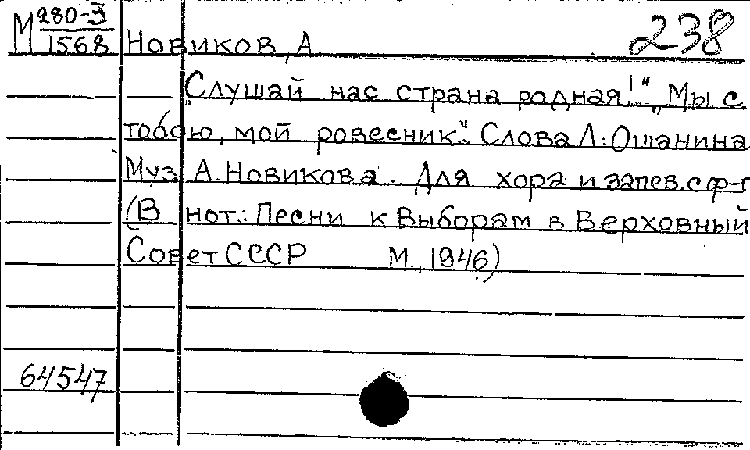 М 280-3 238
1568 Новиков, А
„Слушай нас страна родная!" „Мы с
тобою, мой ровесник". Слова Л. Ошанина
Муз. А. Новикова. Для хора и запев. с ф-п
(В нот.: Песни к Выборам в Верховный
Совет СССР М., 1946)
64547